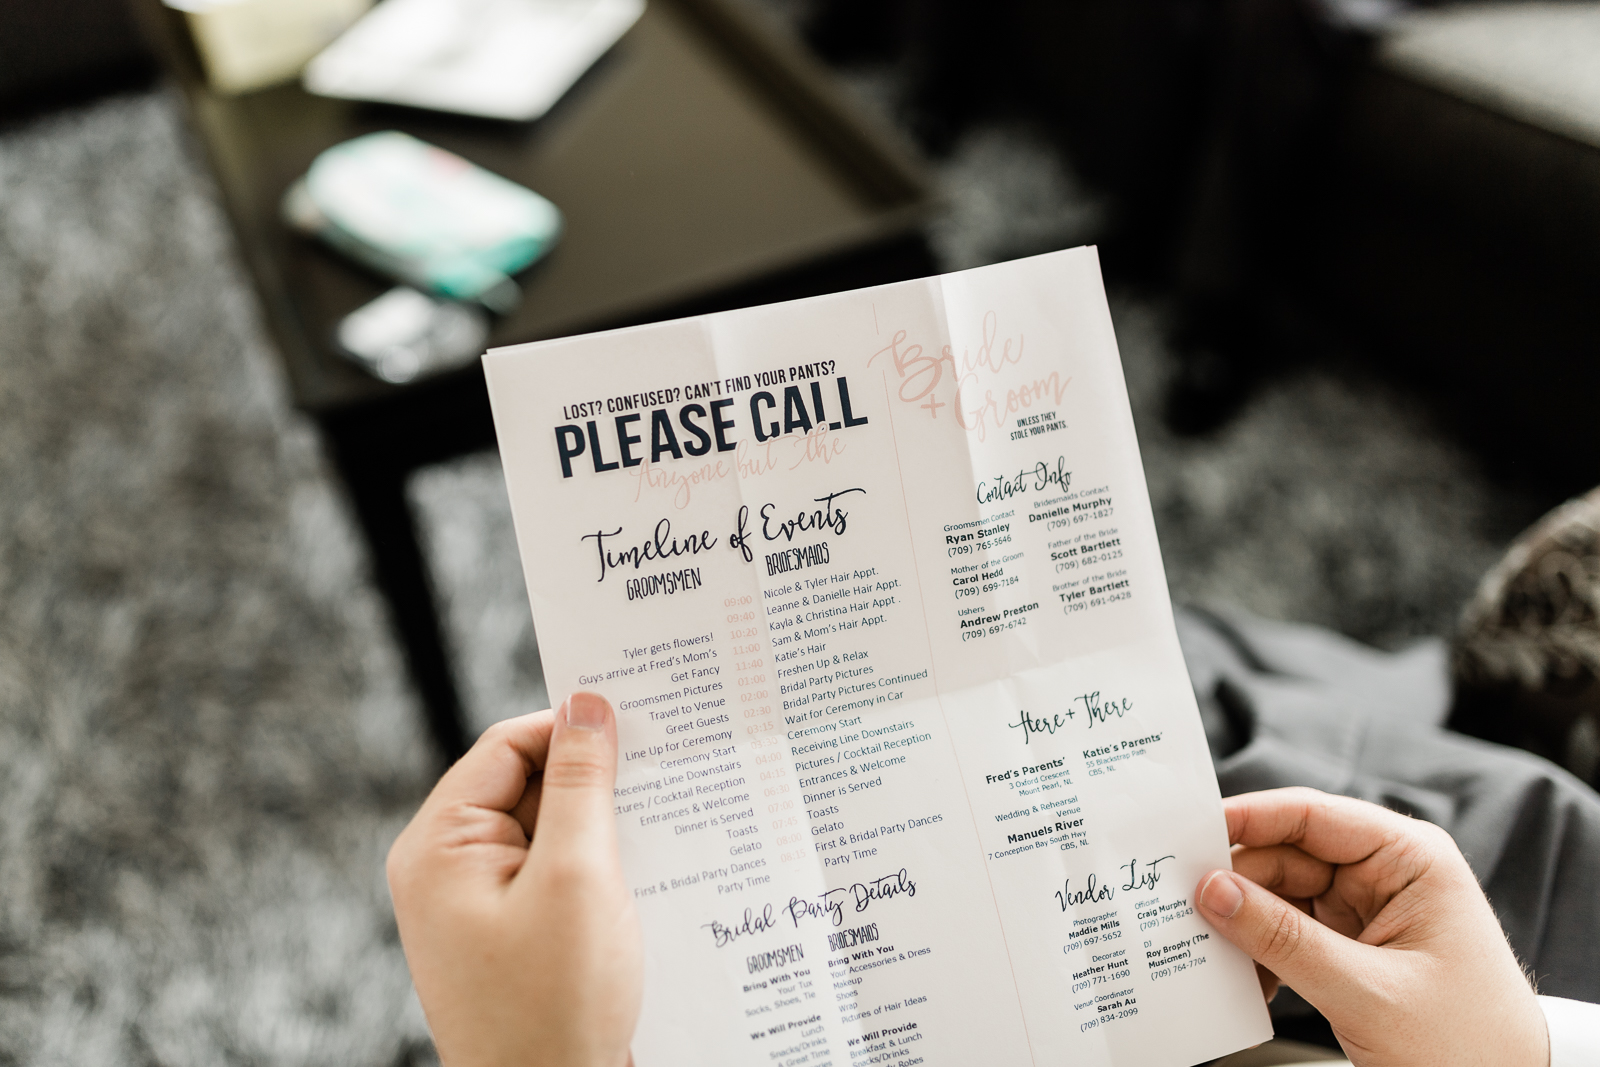 LOST? CONFUSED? CAN'T FIND YOUR PANTS?
PLEASE CALL
Anyone but the
Bride
+ Groom
UNLESS THEY
STOLE YOUR PANTS.
Timeline of Events
GROOMSMEN
BRIDESMAIDS
09:00 Nicole & Tyler Hair Appt.
09:40 Leanne & Danielle Hair Appt.
Tyler gets flowers! 10:20 Kayla & Christina Hair Appt .
Guys arrive at Fred's Mom's 11:00 Sam & Mom's Hair Appt.
Get Fancy 11:40 Katie's Hair
Groomsmen Pictures 01:00 Freshen Up & Relax
Travel to Venue 02:00 Bridal Party Pictures
Greet Guests 02:30 Bridal Party Pictures Continued
Line Up for Ceremony 03:15 Wait for Ceremony in Car
Ceremony Start 03:30 Ceremony Start
Receiving Line Downstairs 04:00 Receiving Line Downstairs
ctures / Cocktail Reception 04:15 Pictures / Cocktail Reception
Entrances & Welcome 06:30 Entrances & Welcome
Dinner is Served 07:00 Dinner is Served
Toasts 07:45 Toasts
Gelato 08:00 Gelato
First & Bridal Party Dances 08:15 First & Bridal Party Dances
Party Time Party Time
Bridal Party Details
GROOMSMEN
Bring With You
Your Tux
Socks, Shoes, Tie
We Will Provide
Lunch
Snacks/Drinks
A Great Time
BRIDESMAIDS
Bring With You
Your Accessories & Dress
Makeup
Shoes
Wrap
Pictures of Hair Ideas
We Will Provide
Breakfast & Lunch
Snacks/Drinks
Robes
Contact Info
Groomsmen Contact
Ryan Stanley
(709) 765-5646
Bridesmaids Contact
Danielle Murphy
(709) 697-1827
Mother of the Groom
Carol Hedd
(709) 699-7184
Father of the Bride
Scott Bartlett
(709) 682-0125
Ushers
Andrew Preston
(709) 697-6742
Brother of the Bride
Tyler Bartlett
(709) 691-0428
Here + There
Fred's Parents'
3 Oxford Crescent
Mount Pearl, NL
Katie's Parents'
55 Blackstrap Path
CBS, NL
Wedding & Rehearsal
Venue
Manuels River
7 Conception Bay South Hwy
CBS, NL
Vendor List
Photographer
Maddie Mills
(709) 697-5652
Officiant
Craig Murphy
(709) 764-8243
Decorator
Heather Hunt
(709) 771-1690
DJ
Roy Brophy (The
Musicmen)
(709) 764-7704
Venue Coordinator
Sarah Au
(709) 834-2099